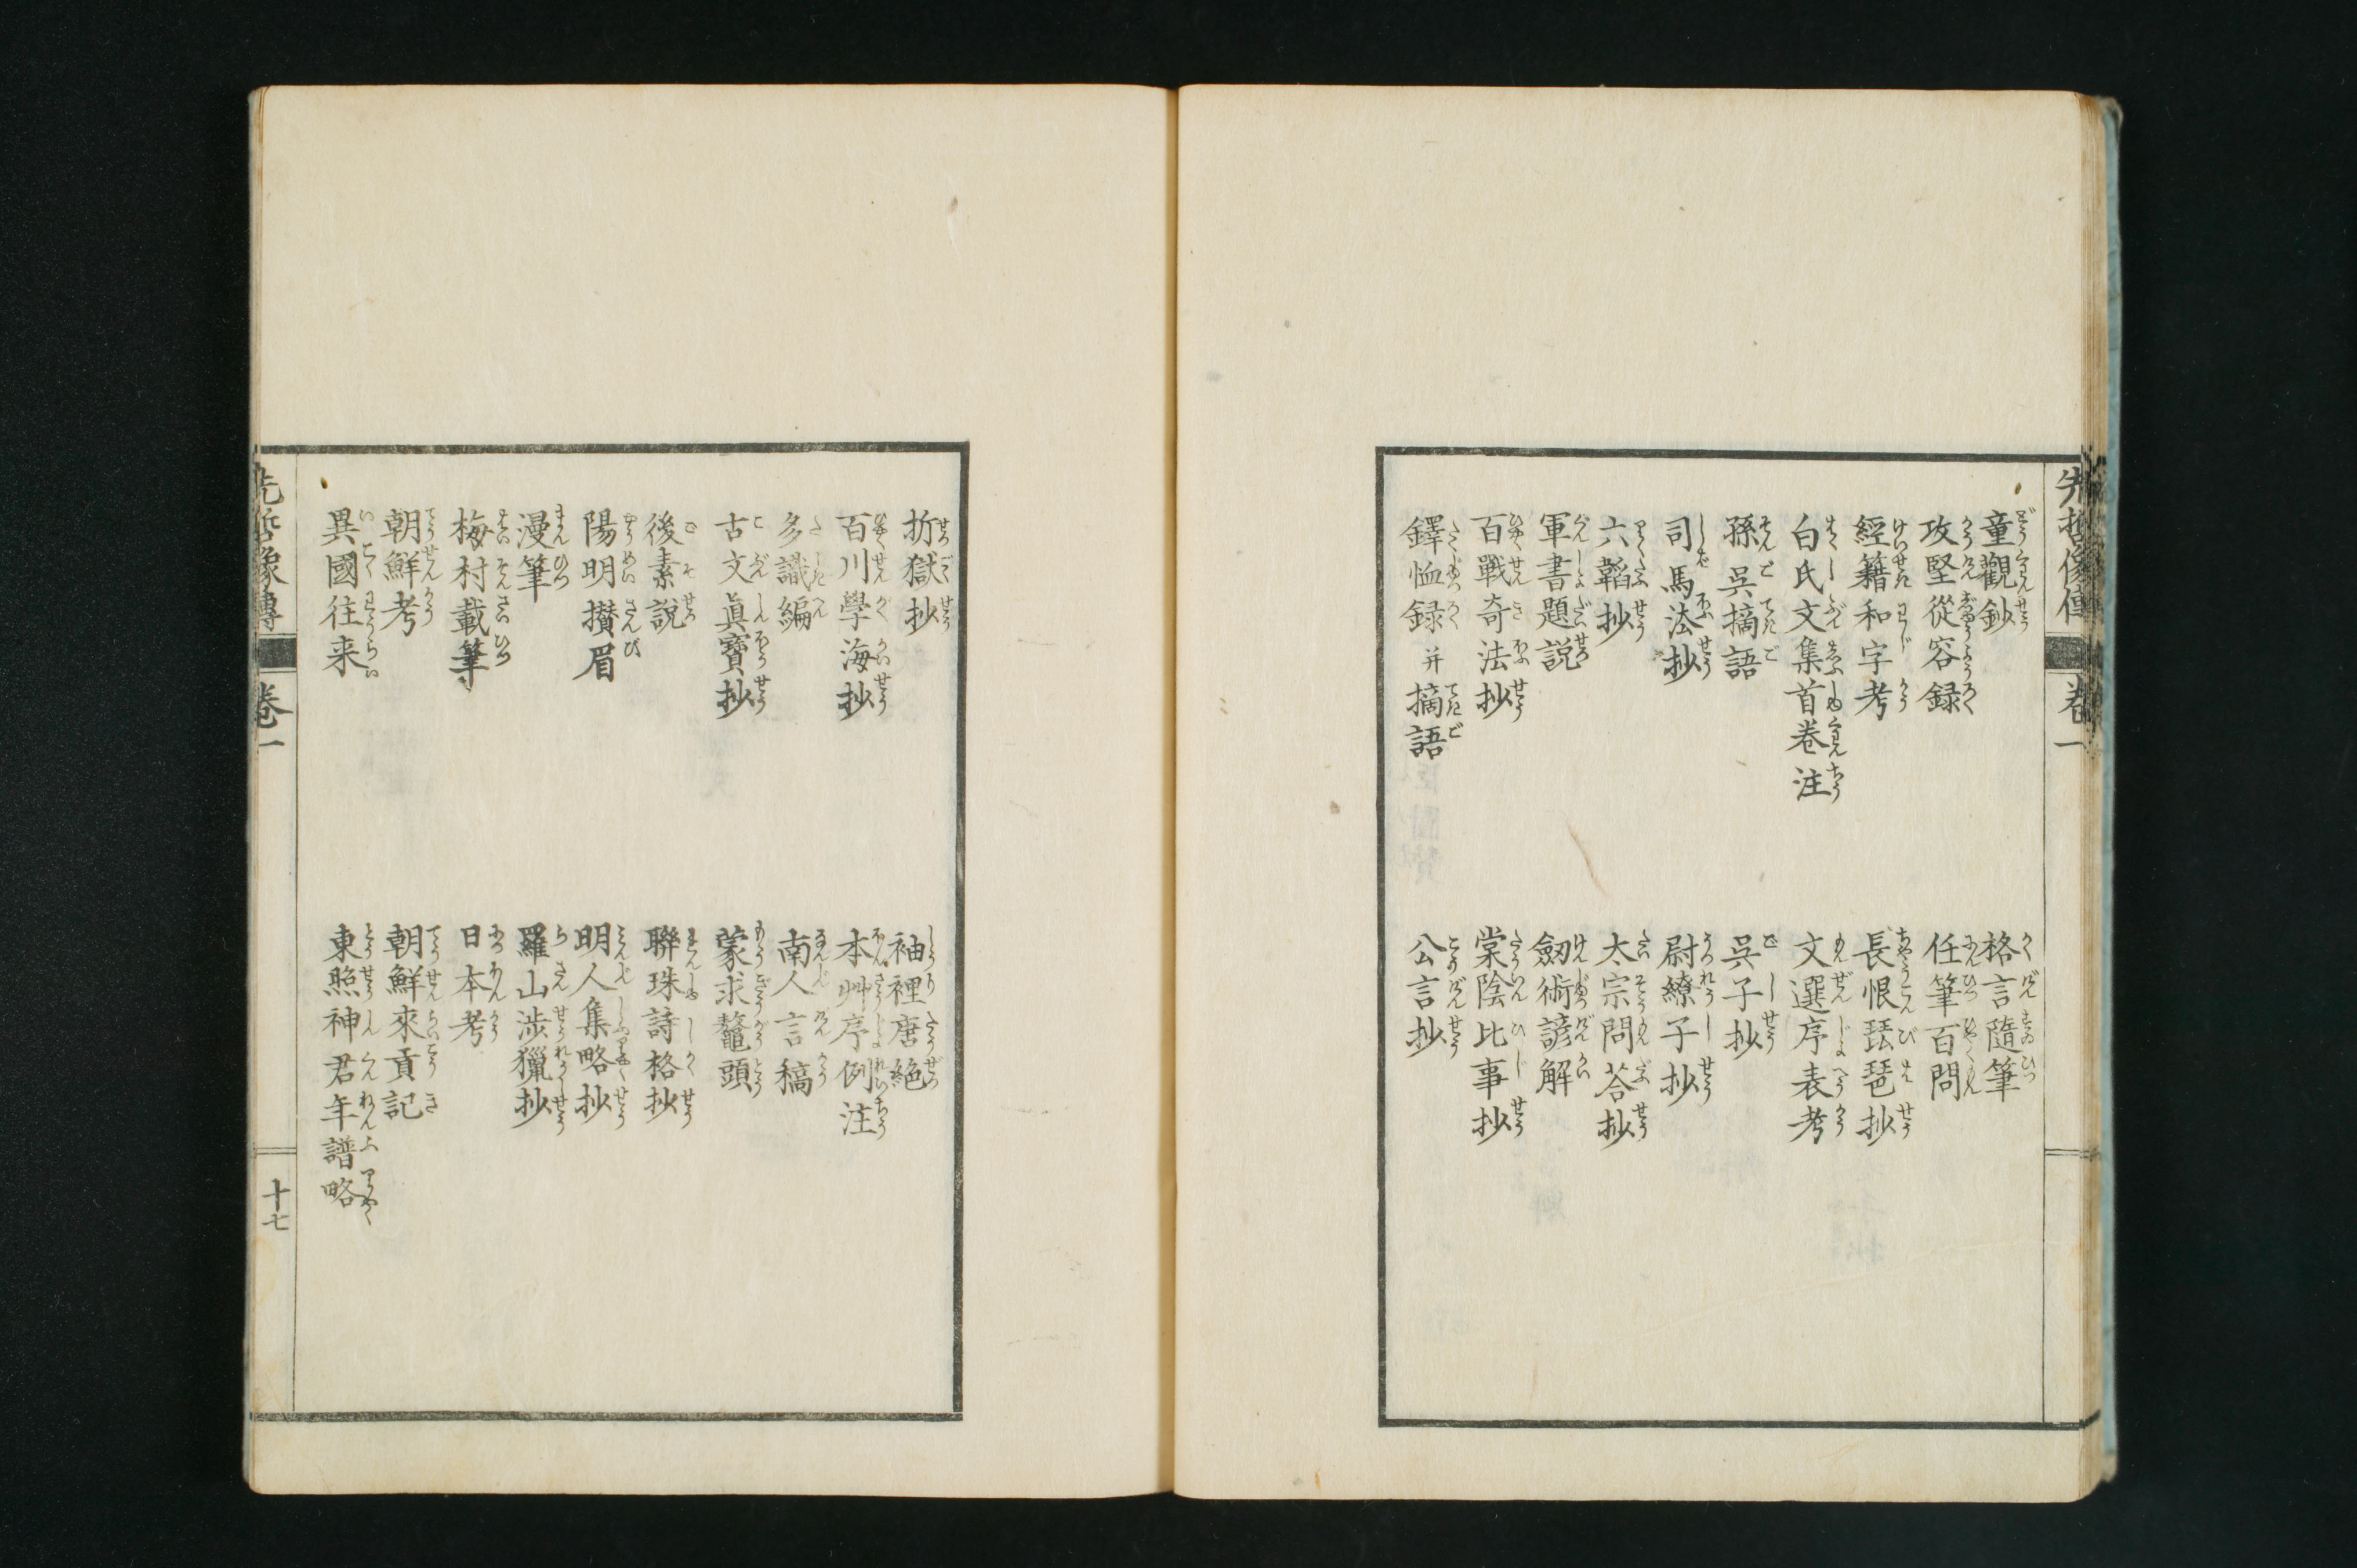 先哲像傳 卷一
童觀鈔
格言隨筆
攻堅從容録
任筆百問
經籍和字考
長恨琵琶抄
白氏文集首卷注
文選序表考
孫呉摘語
呉子抄
司馬法抄
尉繚子抄
六韜抄
太宗問荅抄
軍書題説
劔術諺解
百戰奇法抄
棠陰比事抄
鐸恤録并摘語
公言抄
折獄抄
袖裡唐絶
百川學海抄
本艸序例注
多識編
南人言稿
古文眞寶抄
蒙求鼇頭
後素説
聯珠詩格抄
陽明攅眉
明人集略抄
漫筆
羅山渉獵抄
梅村載筆
日本考
朝鮮考
朝鮮來貢記
異國往来
東照神君年譜略
先哲像傳 卷一 十七